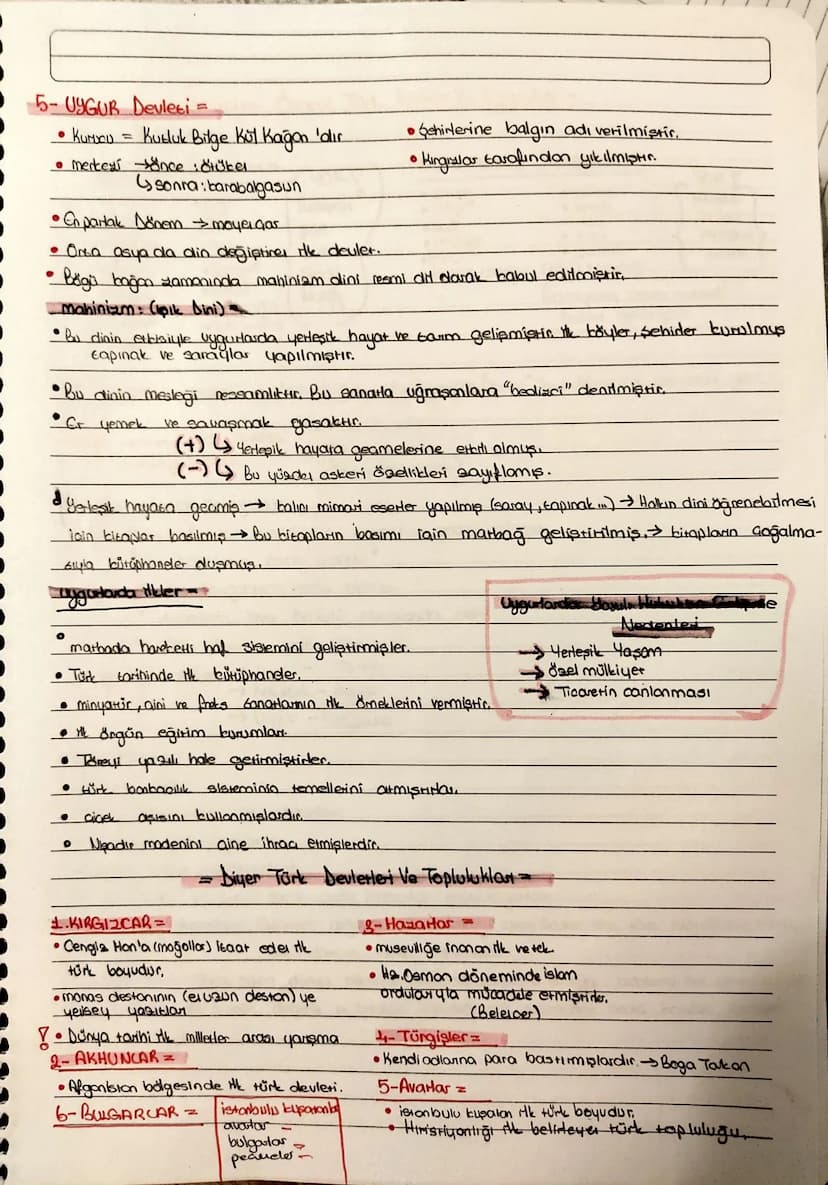 5- UYGUR Devleti =
• Kurucu = Kutluk Bilge Kül Kağan 'dır
• merkezi → önce : ötüken
↳ sonra : karabalgasun
• Şehirlerine balgın adı verilmiştir.
• Kırgızlar tarafından yıkılmıştır.
• En parlak Dönem → moyençor
• Orta asya da din değiştiren ilk devlet.
• Bögü kağan zamanında mahinizm dini resmi dil olarak kabul edilmiştir.
mahinizm: (ışık Dini)
• Bu dinin etkisiyle uygurlarda yerleşik hayat ve tarım gelişmiştir. ilk köyler, şehirler kurulmuş
tapınak ve saraylar yapılmıştır.
• Bu dinin mesleği ressamlıktır. Bu sanatla uğraşanlara "bedizci" denilmiştir.
• Et yemek ve savaşmak yasaktır.
(+) ↳ Yerleşik hayata geçmelerine etkili olmuş.
(-) ↳ Bu yüzden askeri özellikleri zayıflamış.
Yerleşik hayata geçmiş → kalıcı mimari eserler yapılmış (saray, tapınak...) → Halkın dini öğrenebilmesi
için kitaplar basılmış → Bu kitapların basımı için matbağ geliştirilmiş. → kitapların çoğalma-
sıyla kütüphaneler oluşmuş.
uygurlarda ilkler =
• matbada hareketli harf sistemini geliştirmişler.
• Türk tarihinde ilk kütüphaneler.
• minyatür, çini ve fresk sanatlarının ilk örneklerini vermiştir.
• ilk örgün eğitim kurumları.
• Töreyi yazılı hale getirmiştirler.
• türk bankacılık sisteminin temellerini atmıştırlar.
• çiçek aşısını kullanmışlardır.
• Nışadır madenini çine ihraç etmişlerdir.
Uygurlarda Yazılı Hukukun
Nedenleri
→ Yerleşik Yaşam
→ Özel mülkiyet
→ Ticaretin canlanması
= Diyer Türk Devletleri Ve Toplulukları =
1. KIRGIZLAR =
• Cengiz Han'a (moğollar) itaat eden ilk
türk boyudur.
• manas destanının (en uzun destan) ve
yenisey yazıtları
! • Dünya tarihi ilk milletler arası yarışma
2- AKHUNLAR =
• Afganistan bölgesinde ilk türk devleti.
6- BULGARLAR =
istanbulu kuşatanlar
avarlar -
bulgarlar -
peçenekler -
3- Hazarlar =
• museviliğe inanan ilk ve tek.
• Hz. Osman döneminde islam
ordularıyla mücadele etmişrirler.
(Belencer)
4- Türgişler =
• Kendi adlarına para bastırmışlardır. → Baga Tarkan
5- Avarlar =
• istanbulu kuşatan ilk türk boyudur.
• Hıristiyanlığı ilk türk topluluğu.